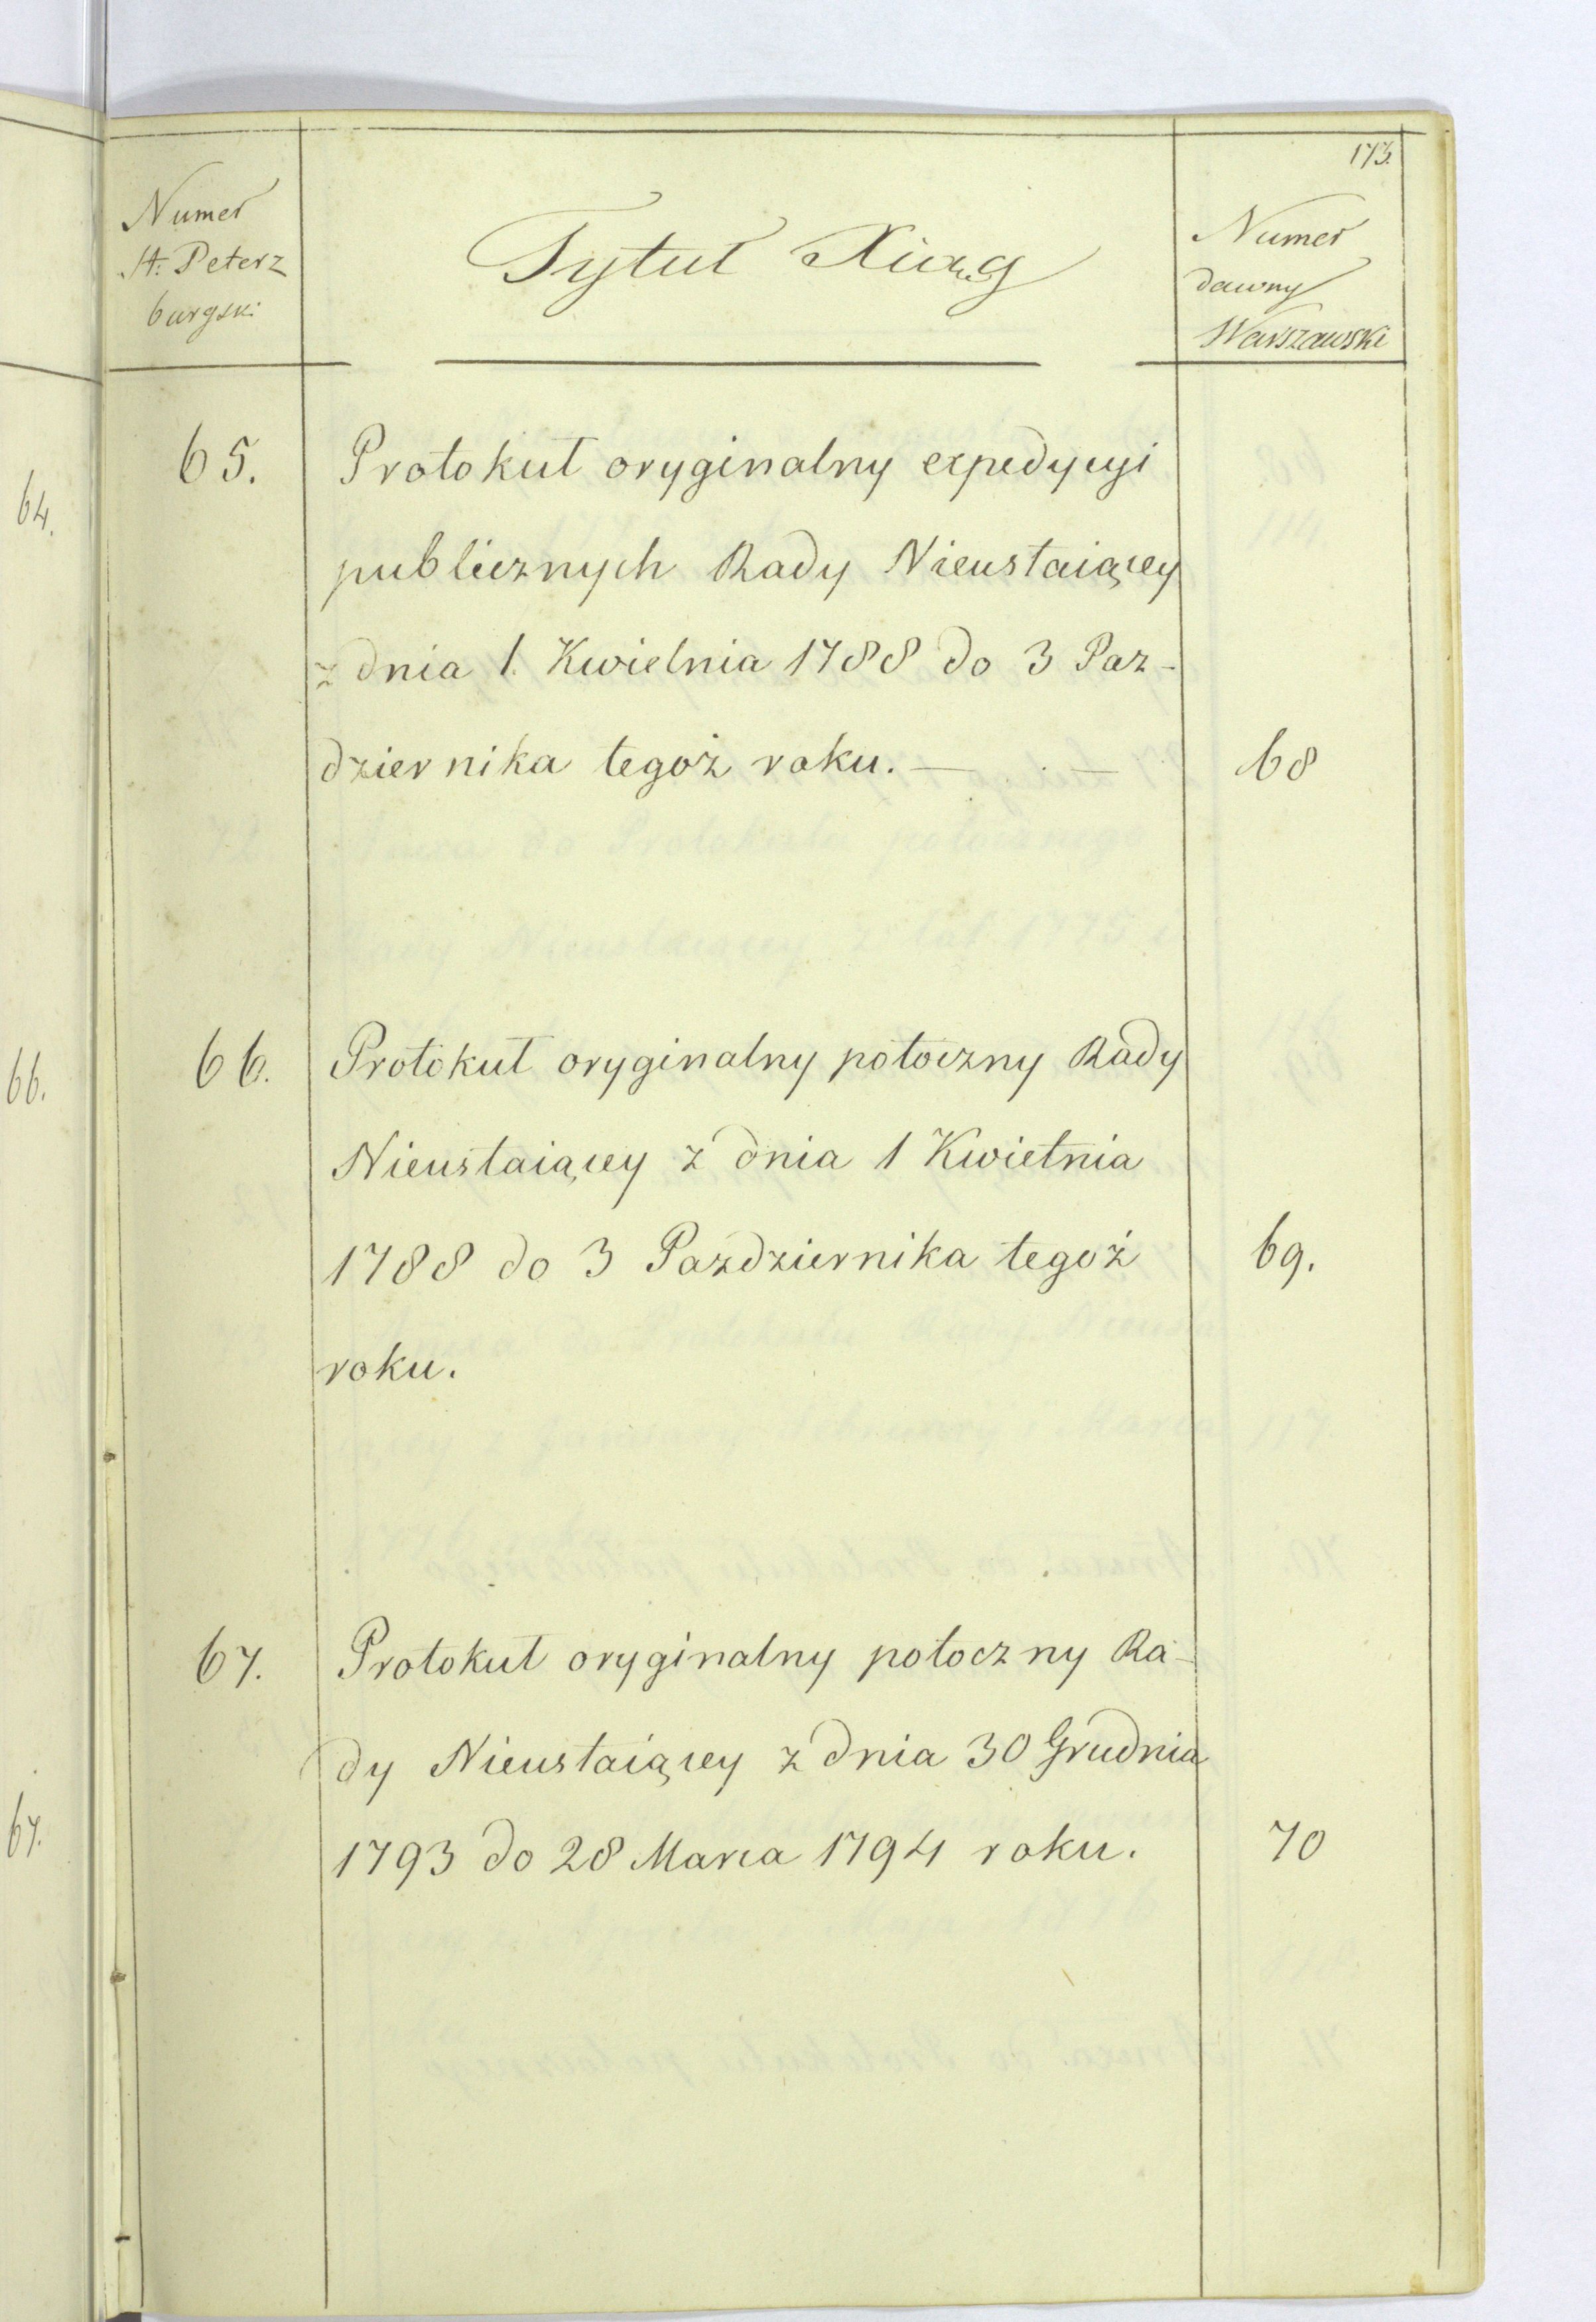 173.
Numer
St. Peterz
burgski
Tytuł Xiąg
Numer
dawny
Warszawski
64.
66.
67.
65.
Protokuł oryginalny expedycyi
publicznych Rady Nieustaiącey
z dnia 1. Kwietnia 1788 do 3 Paz-
dziernika tegoż roku. — . —
68
66.
Protokuł oryginalny potoczny Rady
Nieustaiącey z dnia 1 Kwietnia
1788 do 3 Pazdziernika tegoż
69.
roku.
67.
Protokuł oryginalny potoczny Ra-
dy Nieustaiącey z dnia 30 Grudnia
1793 do 28 Marca 1794 roku.
70